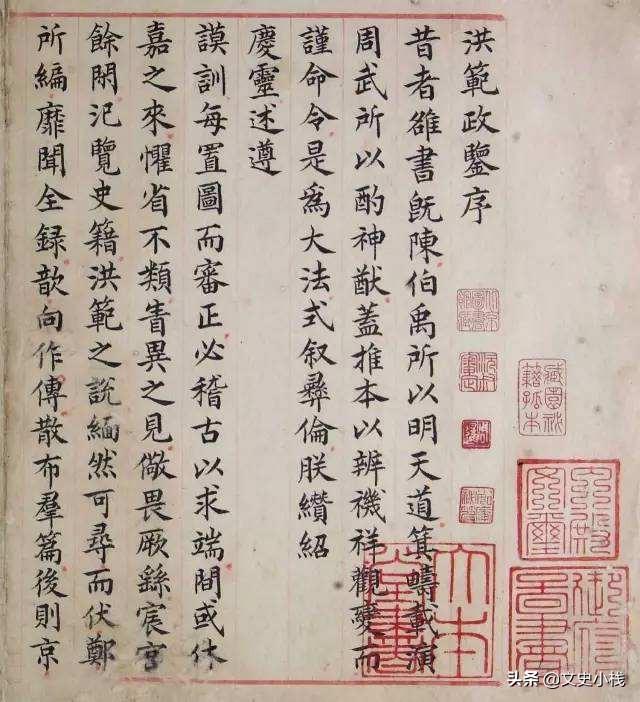 洪範政鑒序
昔者雒書旣陳伯禹所以明天道箕疇載演
周武所以酌神猷蓋推本以辨禨祥觀變而
謹命令是爲大法式叙彝倫朕纘紹
慶靈述遵
謨訓每置圖而審正必稽古以求端間或休
嘉之來懼省不類眚異之見儆畏厥繇宸宫
餘閑汜覽史籍洪範之說緬然可尋而伏鄭
所編靡聞全録歆向作傳散布羣篇後則京
藏園秘
籍孤本
頭条 @文史小栈